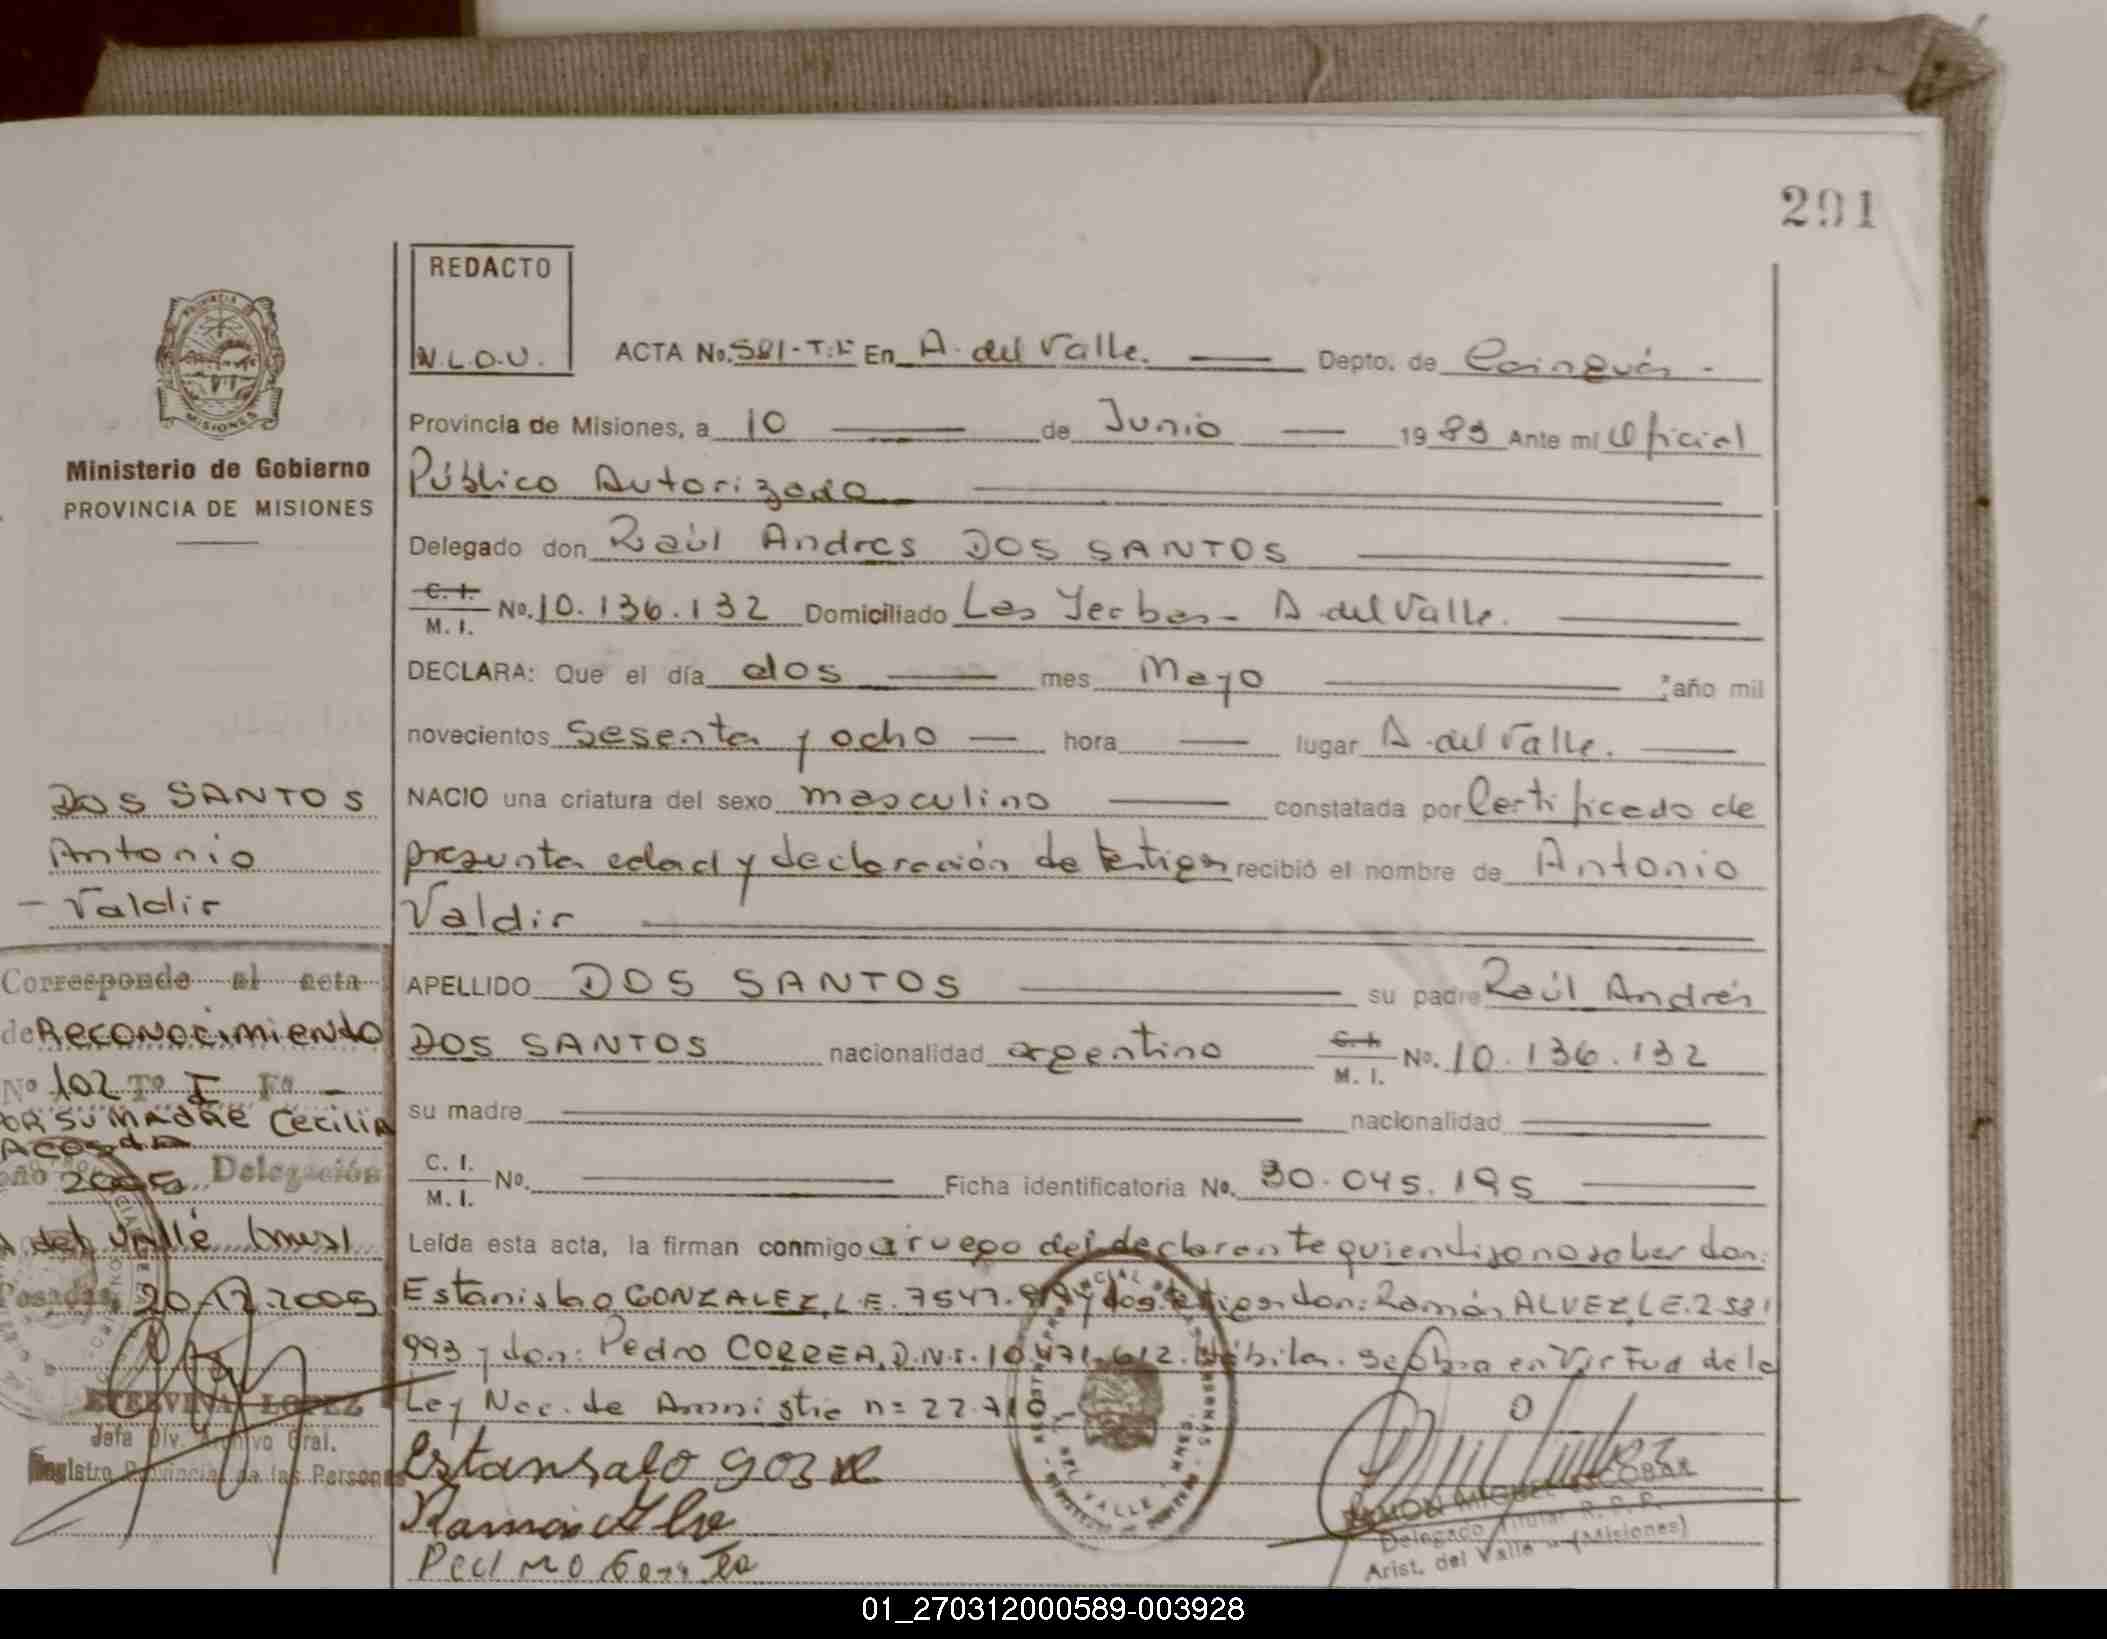 291
REDACTO
N.L.O.U.
ACTA No. 581-T.E En A. del Valle. Depto. de Cainguás -
Provincia de Misiones, a 10 de Junio 1983 Ante mi Oficial
Público Autorizado
Delegado don Raúl Andres DOS SANTOS
C. I. M. I. No. 10.136.132 Domiciliado Las Yerbas - A del Valle.
DECLARA: Que el día dos mes Mayo año mil
novecientos sesenta y ocho hora lugar A. del Valle.
NACIO una criatura del sexo masculino constatada por Certificado de
presunta edad y declaración de testigos recibió el nombre de Antonio
Valdir
APELLIDO DOS SANTOS su padre Raúl Andrés
DOS SANTOS nacionalidad argentino C. I. M. I. No. 10.136.132
su madre nacionalidad
C. I. M. I. No. Ficha identificatoria No. 30.045.195
Leída esta acta, la firman conmigo a ruego del declarante quien dijo no saber don:
Estanislao GONZALEZ, L.E. 7547. y dos testigos don: Ramón ALVEZ, L.E. 2 531
993 y don: Pedro CORREA, D.N.I. 10.471.612. Hábiles. Se labra en virtud de la
Ley Nac. de Amnistia n= 22.710
Ramon Alve
RAMON MIGUEL ESCOBAR
Delegado Titular R.P.P.
Arist. del Valle - (Misiones)
PROVINCIA DE MISIONES
Ministerio de Gobierno
PROVINCIA DE MISIONES
DOS SANTOS
Antonio
- Valdir
Corresponde al acta
de RECONOCIMIENTO
Nº 102 Tº I Fº -
POR SU MADRE CECILIA
ACOSTA
año 2005 Delegación
A del Valle (Mnes)
Posadas, 20-12-2005
ETELVINA LOPEZ
Jefa Div. Archivo Gral.
Registro Provincial de las Personas
01_270312000589-003928